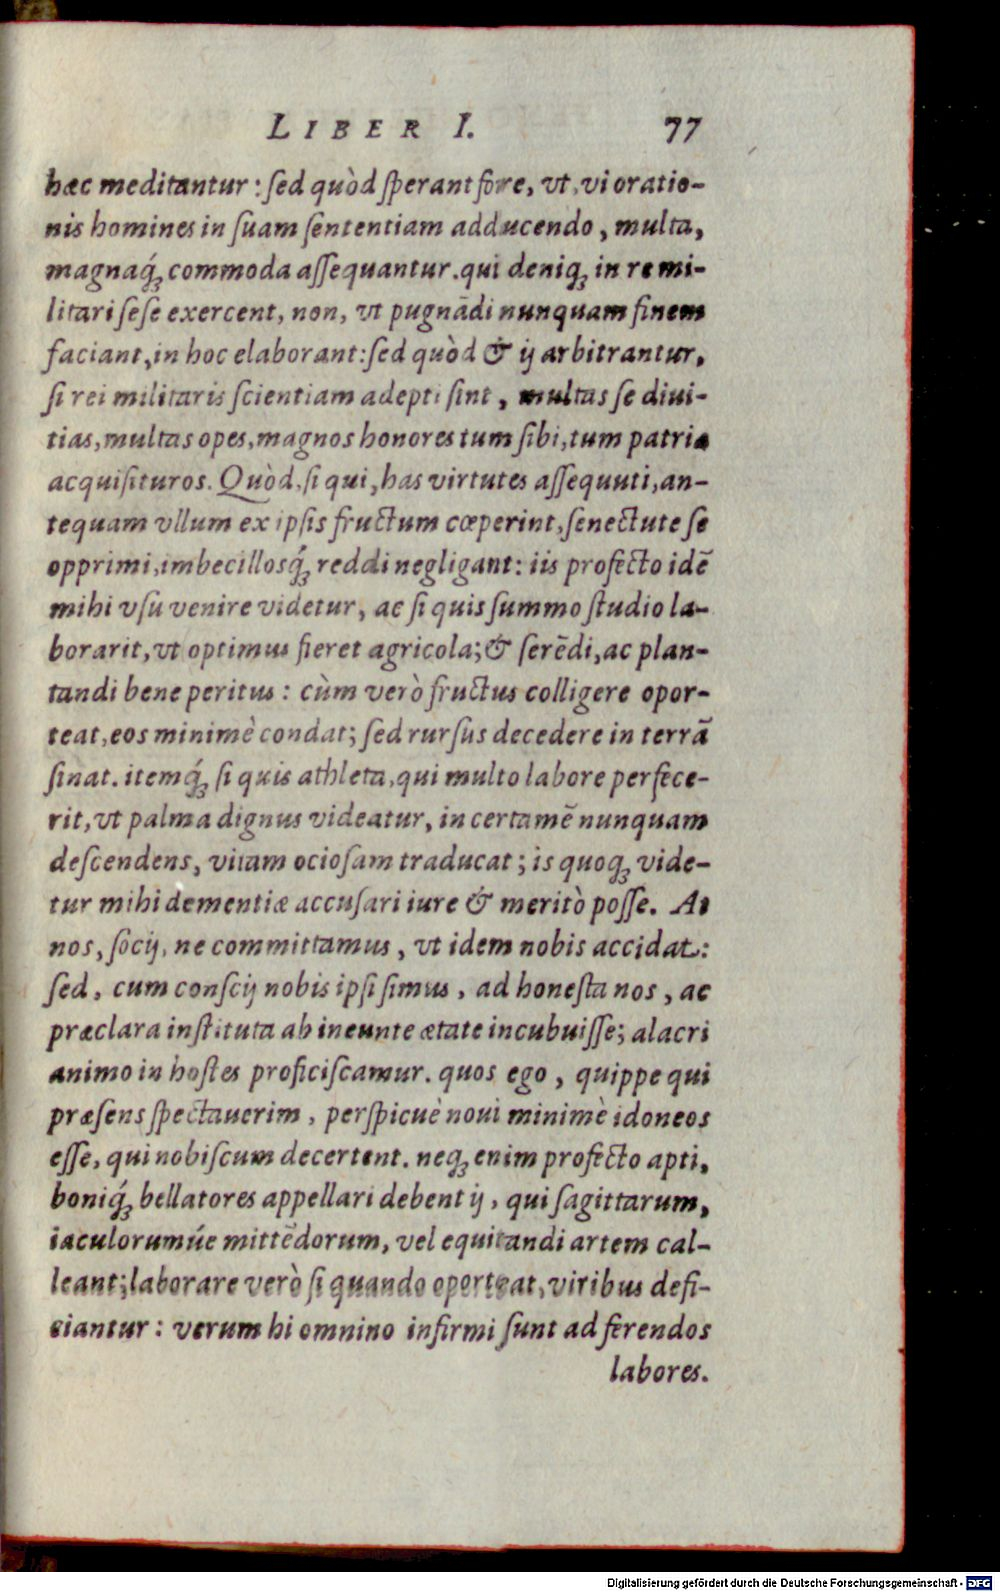 LIBER I. 77
hæc meditantur: sed quòd sperant fore, vt, vi oratio-
nis homines in suam sententiam adducendo, multa,
magnaq́; commoda assequantur. qui deniq; in re mi-
litari sese exercent, non, vt pugnādi nunquam finem
faciant, in hoc elaborant: sed quòd & ij arbitrantur,
si rei militaris scientiam adepti sint, multas se diui-
tias, multas opes, magnos honores tum sibi, tum patriæ
acquisituros. Quòd, si qui, has virtutes assequuti, an-
tequam vllum ex ipsis fructum cœperint, senectute se
opprimi, imbecillosq́; reddi negligant: iis profecto idē
mihi vsu venire videtur, ac si quis summo studio la-
borarit, vt optimus fieret agricola; & serēdi, ac plan-
tandi bene peritus: cùm verò fructus colligere opor-
teat, eos minimè condat; sed rursùs decedere in terrā
sinat. itemq́; si quis athleta, qui multo labore perfece-
rit, vt palma dignus videatur, in certamē nunquam
descendens, vitam ociosam traducat; is quoq; vide-
tur mihi dementiæ accusari iure & meritò posse. At
nos, socij, ne committamus, vt idem nobis accidat:
sed, cum conscij nobis ipsi simus, ad honesta nos, ac
præclara instituta ab ineunte ætate incubuisse; alacri
animo in hostes proficiscamur. quos ego, quippe qui
præsens spectauerim, perspicuè noui minimè idoneos
esse, qui nobiscum decertent. neq; enim profecto apti,
boniq́; bellatores appellari debent ij, qui sagittarum,
iaculorumúe mittēdorum, vel equitandi artem cal-
leant; laborare verò si quando oporteat, viribus defi-
ciantur: verum hi omnino infirmi sunt ad ferendos
labores.
Digitalisierung gefördert durch die Deutsche Forschungsgemeinschaft - DFG